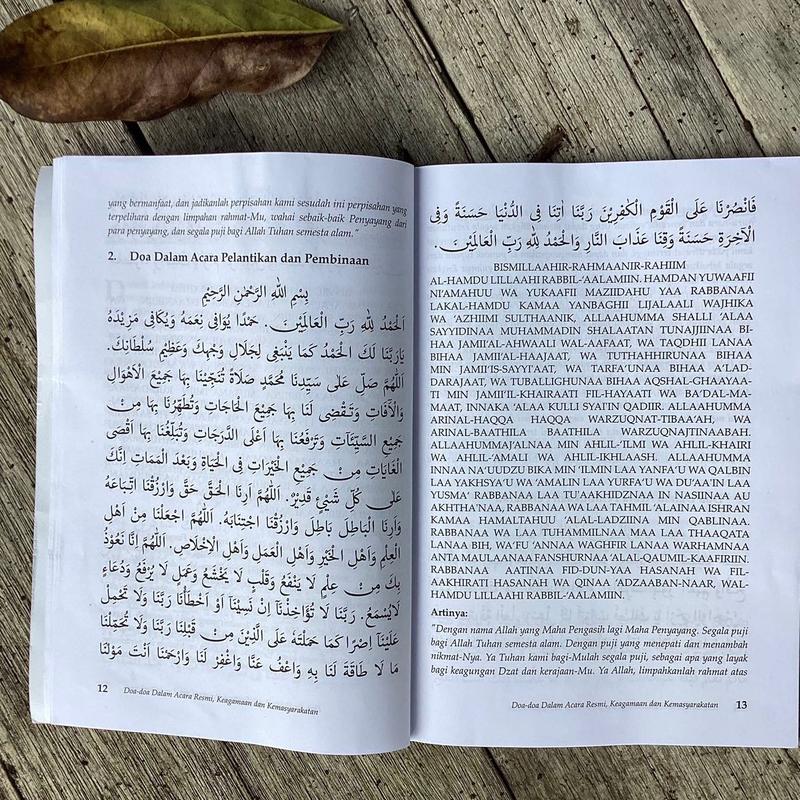 yang bermanfaat, dan jadikanlah perpisahan kami sesudah ini perpisahan yang
terpelihara dengan limpahan rahmat-Mu, wahai sebaik-baik Penyayang dari
para penyayang, dan segala puji bagi Allah Tuhan semesta alam."
2. Doa Dalam Acara Pelantikan dan Pembinaan
بِسْمِ اللهِ الرَّحْمٰنِ الرَّحِيْمِ
اَلْحَمْدُ لِلّٰهِ رَبِّ الْعَالَمِيْنَ. حَمْدًا يُوَافِى نِعَمَهُ وَيُكَافِى مَزِيْدَهُ
يَارَبَّنَا لَكَ الْحَمْدُ كَمَا يَنْبَغِى لِجَلَالِ وَجْهِكَ وَعَظِيْمِ سُلْطَانِكَ.
اَللّٰهُمَّ صَلِّ عَلٰى سَيِّدِنَا مُحَمَّدٍ صَلَاةً تُنَجِّيْنَا بِهَا جَمِيْعَ الْاَهْوَالِ
وَالْاٰفَاتِ وَتَقْضِى لَنَا بِهَا جَمِيْعَ الْحَاجَاتِ وَتُطَهِّرُنَا بِهَا مِنْ
جَمِيْعِ السَّيِّئَاتِ وَتَرْفَعُنَا بِهَا اَعْلَى الدَّرَجَاتِ وَتُبَلِّغُنَا بِهَا اَقْصَى
الْغَايَاتِ مِنْ جَمِيْعِ الْخَيْرَاتِ فِى الْحَيَاةِ وَبَعْدَ الْمَمَاتِ اِنَّكَ
عَلٰى كُلِّ شَيْئٍ قَدِيْرٌ. اَللّٰهُمَّ اَرِنَا الْحَقَّ حَقَّ وَارْزُقْنَا اتِّبَاعَهُ
وَاَرِنَا الْبَاطِلَ بَاطِلَ وَارْزُقْنَا اجْتِنَابَهُ. اَللّٰهُمَّ اجْعَلْنَا مِنْ اَهْلِ
الْعِلْمِ وَاَهْلِ الْخَيْرِ وَاَهْلِ الْعَمَلِ وَاَهْلِ الْاِخْلَاصِ. اَللّٰهُمَّ اِنَّا نَعُوْذُ
بِكَ مِنْ عِلْمٍ لَا يَنْفَعُ وَقَلْبٍ لَا يَخْشَعُ وَعَمَلٍ لَا يُرْفَعُ وَدُعَاءٍ
لَايُسْمَعُ. رَبَّنَا لَا تُؤَاخِذْنَا اِنْ نَسِيْنَا اَوْ اَخْطَأْنَا رَبَّنَا وَلَا تَحْمِلْ
عَلَيْنَا اِصْرًا كَمَا حَمَلْتَهُ عَلَى الَّذِيْنَ مِنْ قَبْلِنَا رَبَّنَا وَلَا تُحَمِّلْنَا
مَا لَا طَاقَةَ لَنَا بِهِ وَاعْفُ عَنَّا وَاغْفِرْ لَنَا وَارْحَمْنَا اَنْتَ مَوْلٰنَا
12 Doa-doa Dalam Acara Resmi, Keagamaan dan Kemasyarakatan
فَانْصُرْنَا عَلَى الْقَوْمِ الْكٰفِرِيْنَ رَبَّنَا اٰتِنَا فِى الدُّنْيَا حَسَنَةً وَفِى
الْاٰخِرَةِ حَسَنَةً وَقِنَا عَذَابَ النَّارِ وَالْحَمْدُ لِلّٰهِ رَبِّ الْعَالَمِيْنَ.
BISMILLAAHIR-RAHMAANIR-RAHIIM
AL-HAMDU LILLAAHI RABBIL-'AALAMIIN. HAMDAN YUWAAFII
NI'AMAHUU WA YUKAAFII MAZIIDAHU YAA RABBANAA
LAKAL-HAMDU KAMAA YANBAGHII LIJALAALI WAJHIKA
WA 'AZHIIMI SULTHAANIK, ALLAAHUMMA SHALLI 'ALAA
SAYYIDINAA MUHAMMADIN SHALAATAN TUNAJJIINAA BI-
HAA JAMII'AL-AHWAALI WAL-AAFAAT, WA TAQDHII LANAA
BIHAA JAMII'AL-HAAJAAT, WA TUTHAHHIRUNAA BIHAA
MIN JAMII'IS-SAYYI'AAT, WA TARFA'UNAA BIHAA A'LAD-
DARAJAAT, WA TUBALLIGHUNAA BIHAA AQSHAL-GHAAYAA-
TI MIN JAMII'IL-KHAIRAATI FIL-HAYAATI WA BA'DAL-MA-
MAAT, INNAKA 'ALAA KULLI SYAI'IN QADIIR. ALLAAHUMMA
ARINAL-HAQQA HAQQA WARZUQNAT-TIBAA'AH, WA
ARINAL-BAATHILA BAATHILA WARZUQNAJTINAABAH.
ALLAAHUMMAJ'ALNAA MIN AHLIL-'ILMI WA AHLIL-KHAIRI
WA AHLIL-'AMALI WA AHLIL-IKHLAASH. ALLAAHUMMA
INNAA NA'UUDZU BIKA MIN 'ILMIN LAA YANFA'U WA QALBIN
LAA YAKHSYA'U WA 'AMALIN LAA YURFA'U WA DU'AA'IN LAA
YUSMA' RABBANAA LAA TU'AAKHIDZNAA IN NASIINAA AU
AKHTHA'NAA, RABBANAA WA LAA TAHMIL 'ALAINAA ISHRAN
KAMAA HAMALTAHUU 'ALAL-LADZIINA MIN QABLINAA.
RABBANAA WA LAA TUHAMMILNAA MAA LAA THAAQATA
LANAA BIH, WA'FU 'ANNAA WAGHFIR LANAA WARHAMNAA
ANTA MAULAANAA FANSHURNAA 'ALAL-QAUMIL-KAAFIRIIN.
RABBANAA AATINAA FID-DUN-YAA HASANAH WA FIL-
AAKHIRATI HASANAH WA QINAA 'ADZAABAN-NAAR, WAL-
HAMDU LILLAAHI RABBIL-'AALAMIIN.
Artinya:
"Dengan nama Allah yang Maha Pengasih lagi Maha Penyayang. Segala puji
bagi Allah Tuhan semesta alam. Dengan puji yang menepati dan menambah
nikmat-Nya. Ya Tuhan kami bagi-Mulah segala puji, sebagai apa yang layak
bagi keagungan Dzat and kerajaan-Mu. Ya Allah, limpahkanlah rahmat atas
Doa-doa Dalam Acara Resmi, Keagamaan dan Kemasyarakatan 13